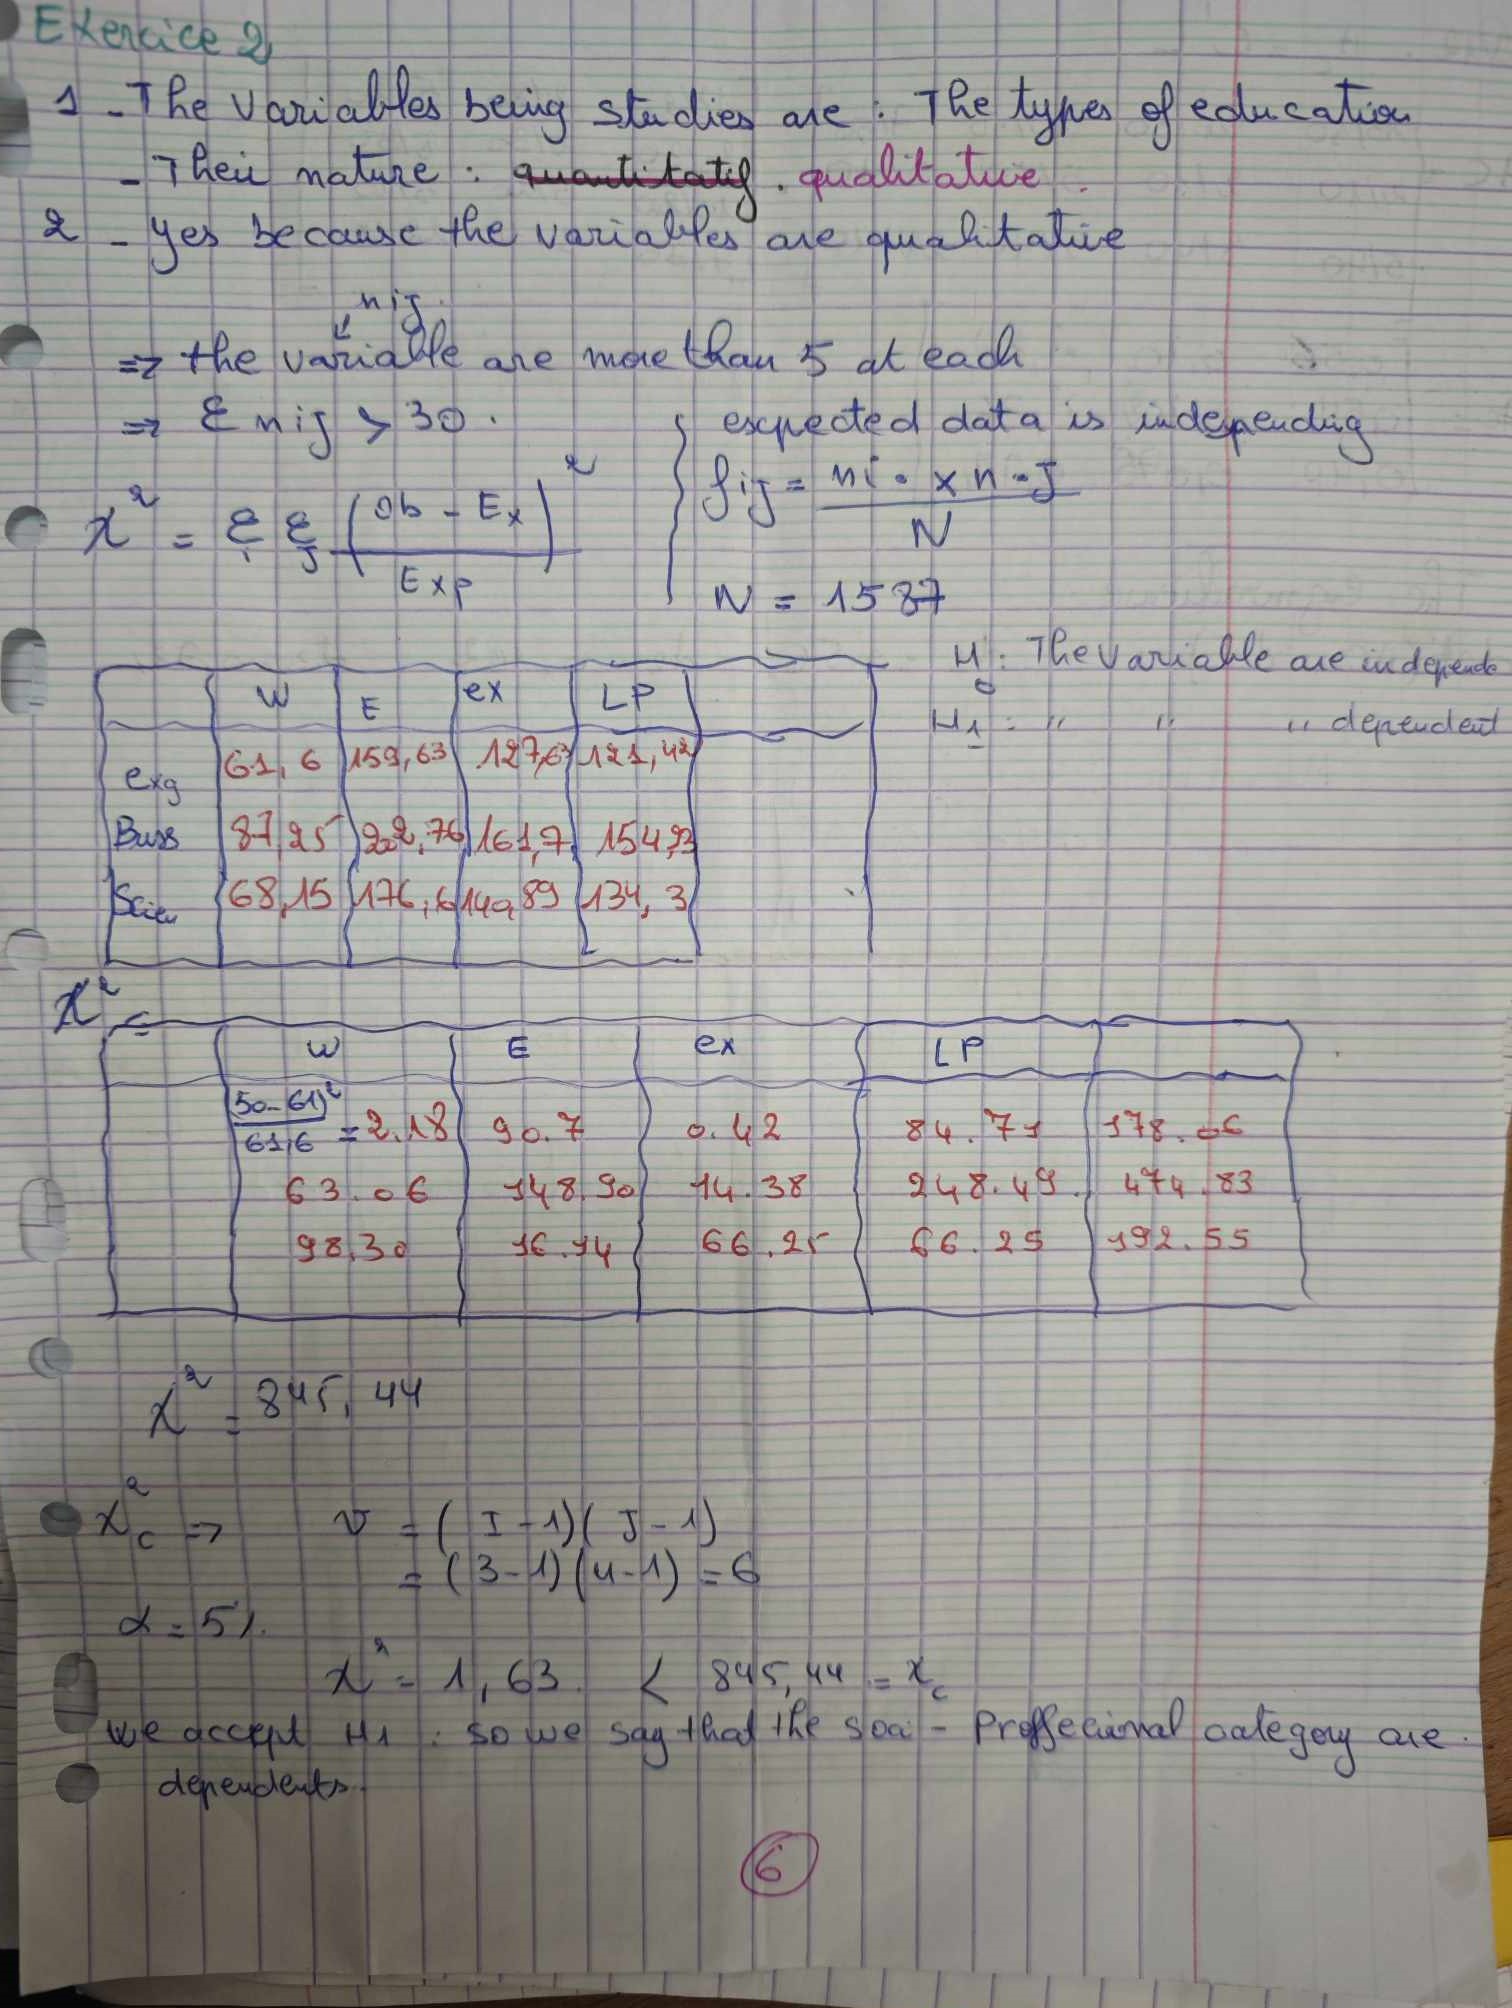 Exercice 2
1 - The variables being studies are : The types of education
- Their nature : quantitatif . qualitative .
2 - yes because the variables are qualitative
nij
=> the variable are more than 5 at each
=> Σ nij > 30 .
expected data is independing
fij = ni• x n•J / N
X² = Σi ΣJ (Ob - Ex)² / Exp
N = 1587
H0 : The variable are independe
H1 = " " " dependent
W E ex LP
exg 61,6 159,63 127,63 121,42
Buss 87,25 202,76 161,7 154,93
Scien 68,15 176,6 140,89 134,3
X² =
W E ex LP
(50-61)² / 61,6 = 2.18 90.7 0.42 84.71 178.06
63.06 148.90 14.38 248.49 474.83
98.30 16.14 66.25 66.25 192.55
X² = 845,44
X²c => v = (I-1)(J-1)
= (3-1)(4-1) = 6
α = 5%
X² = 1,63 < 845,44 = Xc
We accept H1 : so we say that the soci - Proffecional category are
dependents.
6